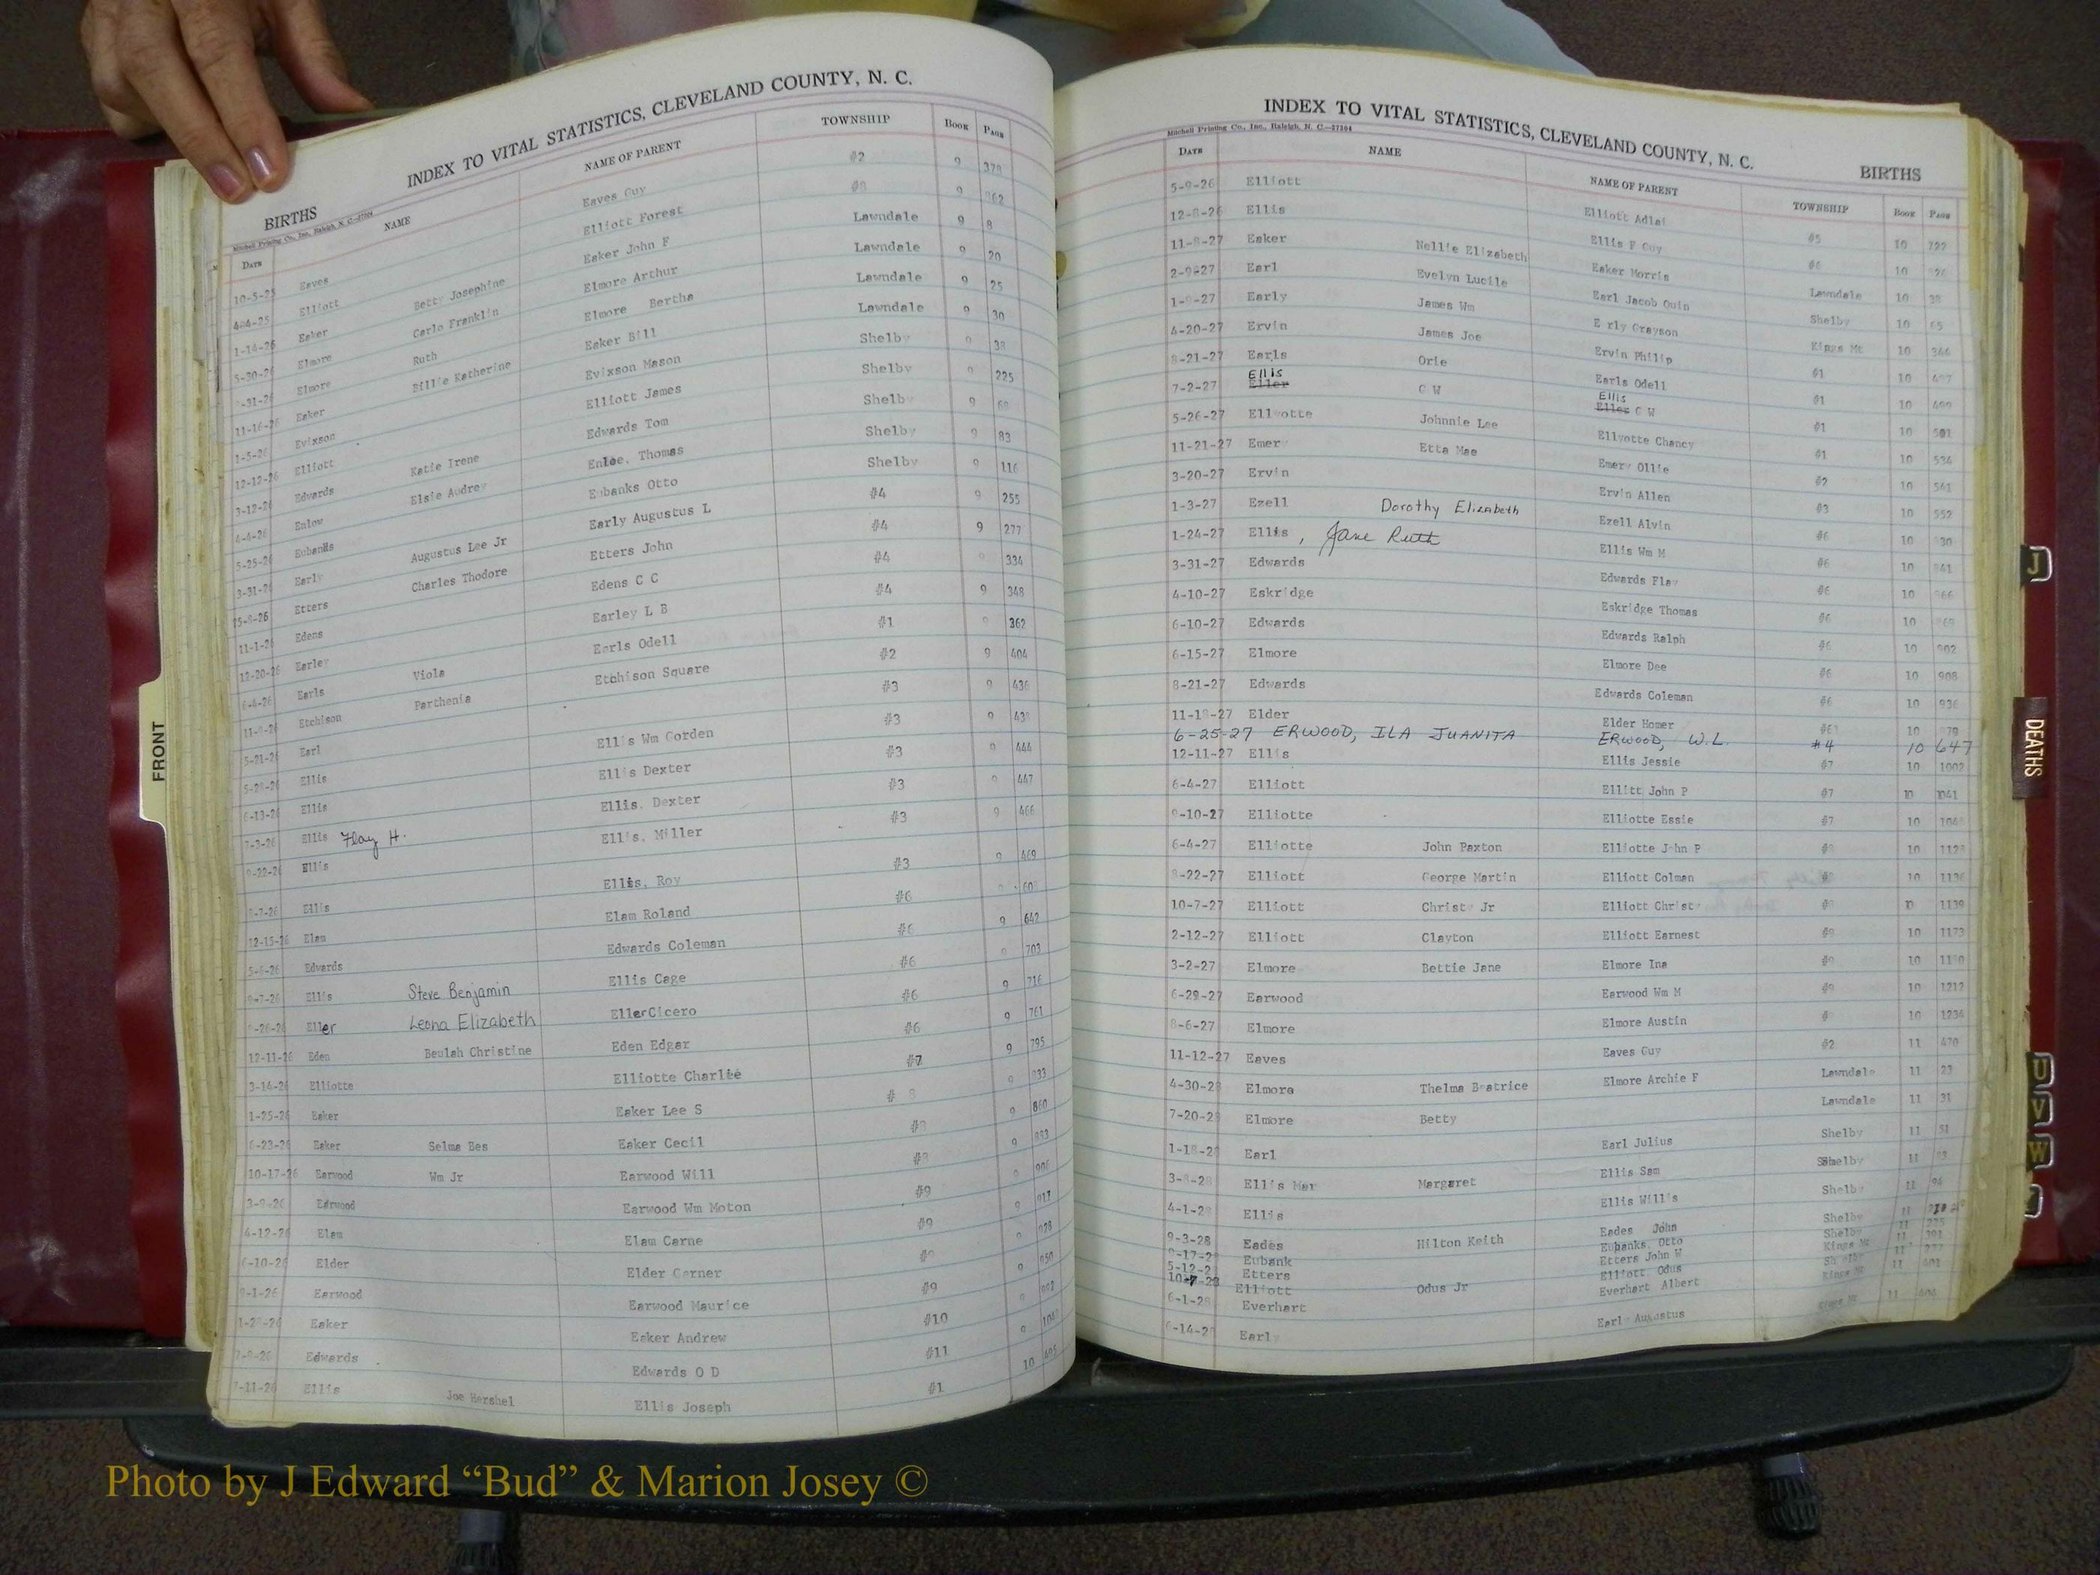 INDEX TO VITAL STATISTICS, CLEVELAND COUNTY, N. C.
BIRTHS
Mitchell Printing Co., Inc., Raleigh, N. C.
DATE NAME NAME OF PARENT TOWNSHIP BOOK PAGE
10-5-25 Eaves Eaves Guy #2 9 378
Elliott Elliott Forest #8 9
1-14-26 Eaker Betty Josephine Eaker John F Lawndale 9 8
5-30-26 Elmore Carlo Franklin Elmore Arthur Lawndale 9 20
Elmore Ruth Elmore Bertha Lawndale 9 25
11-16-26 Eaker Billie Katherine Eaker Bill Lawndale 9 30
1-5-26 Evixson Evixson Mason Shelby 9 38
12-12-26 Elliott Elliott James Shelby 9 225
3-12-26 Edwards Katie Irene Edwards Tom Shelby 9
4-4-26 Enlow Elsie Audrey Enloe, Thomas Shelby 9 83
5-25-26 Eubanks Eubanks Otto Shelby 9 116
3-31-26 Early Augustus Lee Jr Early Augustus L #4 9 255
Etters Charles Thodore Etters John #4 9 277
11-1-26 Edens Edens C C #4 9 334
12-20-26 Earley Earley L B #4 9 348
6-4-26 Earls Viola Earls Odell #1 9 362
Etchison Parthenia Etchison Square #2 9 404
5-21-26 Earl #3 9 436
Ellis Ellis Wm Gorden #3 9
6-13-26 Ellis Ellis Dexter #3 9 444
7-3-26 Ellis Flay H. Ellis, Dexter #3 9 447
Ellis Ellis, Miller #3 9 466
Ellis Ellis, Roy #3 9 469
12-15-26 Elam Elam Roland #6
Edwards Edwards Coleman #6 9 642
Ellis Steve Benjamin Ellis Cage #6 703
Eller Leona Elizabeth Eller Cicero #6 9 716
12-11-26 Eden Beulah Christine Eden Edgar #6 9 761
3-14-26 Elliotte Elliotte Charlie #7 9 795
1-25-26 Eaker Eaker Lee S # 8 9
6-23-26 Eaker Selma Bes Eaker Cecil #8 9 860
10-17-26 Earwood Wm Jr Earwood Will 9
Earwood Earwood Wm Moton #9 9
4-12-26 Elam Elam Carne #9 9
6-10-26 Elder Elder Garner
9-1-26 Earwood Earwood Maurice #9 9
Eaker Eaker Andrew #10
Edwards Edwards O D #11 9
7-11-26 Ellis Joe Hershel Ellis Joseph #1 10
INDEX TO VITAL STATISTICS, CLEVELAND COUNTY, N. C.
BIRTHS
Mitchell Printing Co., Inc., Raleigh, N. C.—37204
DATE NAME NAME OF PARENT TOWNSHIP BOOK PAGE
5-9-26 Elliott Elliott Adlai #5 10
12-8-26 Ellis Ellis F Guy #6 10
11-8-27 Eaker Nellie Elizabeth Eaker Morris Lawndale 10 38
2-9-27 Earl Evelyn Lucile Earl Jacob Quin Shelby 10 65
1-9-27 Early James Wm E rly Grayson Kings Mt 10
4-20-27 Ervin James Joe Ervin Philip #1 10
8-21-27 Earls Orie Earls Odell #1 10
7-2-27 Ellis Eller C W Ellis Eller C W #1 10 501
5-26-27 Ellyotte Johnnie Lee Ellyotte Chancy #1 10 534
11-21-27 Emery Etta Mae Emery Ollie #2 10 541
3-20-27 Ervin Ervin Allen #3 10 552
1-3-27 Ezell Dorothy Elizabeth Ezell Alvin #6 10
1-24-27 Ellis, Jane Ruth Ellis Wm M #6 10
3-31-27 Edwards Edwards Flay #6 10
4-10-27 Eskridge Eskridge Thomas #6 10
6-10-27 Edwards Edwards Ralph #6 10 902
6-15-27 Elmore Elmore Dee #6 10 908
8-21-27 Edwards Edwards Coleman #6 10 936
11-18-27 Elder Elder Homer 10
6-25-27 ERWOOD, ILA JUANITA ERWOOD, W.L. #4 10 647
12-11-27 Ellis Ellis Jessie #7 10 1002
6-4-27 Elliott Ellitt John P #7 10 1041
9-10-27 Elliotte Elliotte Essie #7 10
6-4-27 Elliotte John Paxton Elliotte J hn P 10
8-22-27 Elliott George Martin Elliott Colman 10 1136
10-7-27 Elliott Christy Jr Elliott Christy 10 1139
2-12-27 Elliott Clayton Elliott Earnest #9 10 1173
3-2-27 Elmore Bettie Jane Elmore Ina #9 10
6-29-27 Earwood Earwood Wm M #9 10 1212
8-6-27 Elmore Elmore Austin 10 1234
11-12-27 Eaves Eaves Guy #2 11 470
4-30-28 Elmore Thelma Beatrice Elmore Archie F Lawndale 11 23
7-20-28 Elmore Betty Lawndale 11 31
1-18-28 Earl Earl Julius Shelby 11 51
Ellis Mar Margaret Ellis Sam Shelby 11
4-1-28 Ellis Ellis Willis Shelby 11 94
9-3-28 Eades Hilton Keith Eades John Shelby 11
Eubank Eubanks, Otto Shelby 11
5-12-2 Etters Etters John W Kings Mt 11
Elliott Odus Jr Elliott Odus
6-1-28 Everhart Everhart Albert Kings Mt 11
Early Early Augustus Kings Mt 11
FRONT
J
DEATHS
U
V
W
Photo by J Edward “Bud” & Marion Josey ©